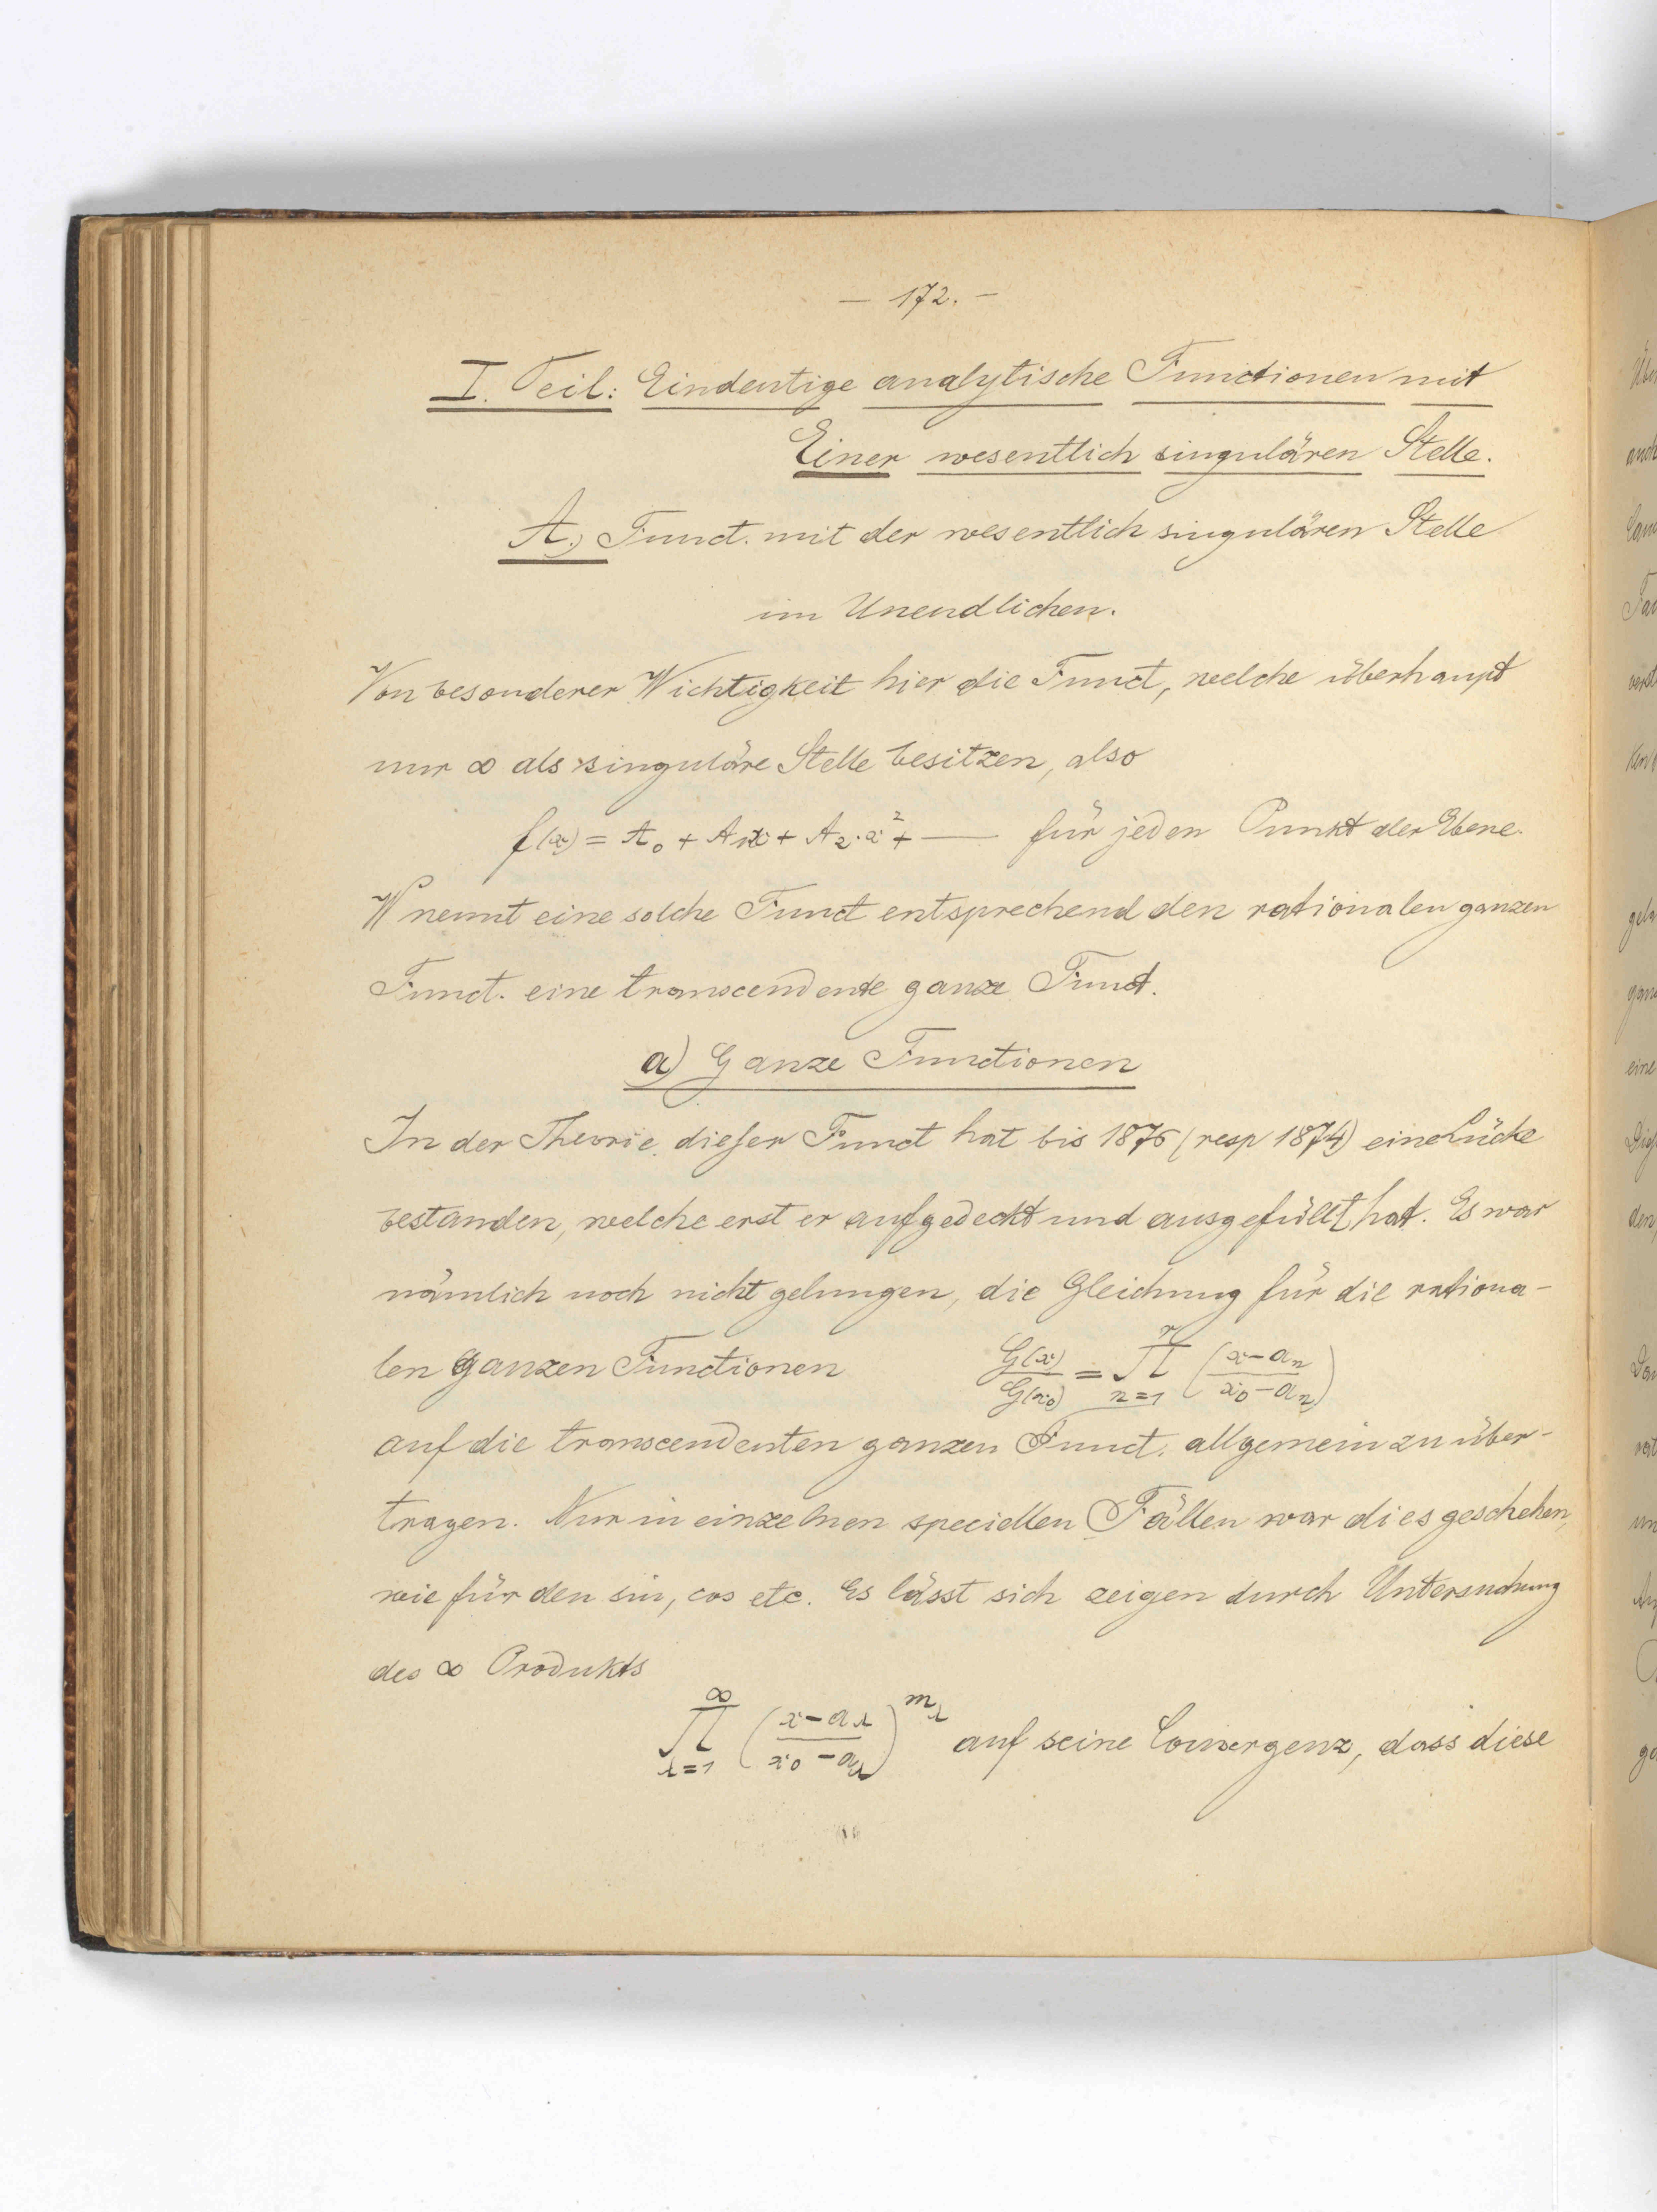 — 172. —
I. Teil: Eindeutige analytische Functionen mit
Einer wesentlich singulären Stelle.
A.) Funct. mit der wesentlich singulären Stelle
im Unendlichen.
Von besonderer Wichtigkeit hier die Funct, welche überhaupt
nur ∞ als singuläre Stelle besitzen, also
f(x) = A₀ + A₁x + A₂·x² + — für jeden Punkt der Ebene.
W nennt eine solche Funct entsprechend den rationalen ganzen
Funct. eine transcendente ganze Funct.
a) Ganze Functionen
In der Theorie dieser Funct hat bis 1876 (resp 1874) eine Lücke
bestanden, welche erst er aufgedeckt und ausgefüllt hat. Es war
nämlich noch nicht gelungen, die Gleichung für die rationa-
len ganzen Functionen G(x)/G(x₀) = ∏ₙ₌₁ʳ ((x-aₙ)/(x₀-aₙ))
auf die transcendenten ganzen Funct. allgemein zu über-
tragen. Nur in einzelnen speciellen Fällen war dies geschehen,
wie für den sin, cos etc. Es lässt sich zeigen durch Untersuchung
des ∞ Produkts
∏ (λ=1, ∞) ((x-a_λ)/(x₀-a_λ))^(m_λ) auf seine Convergenz, dass diese